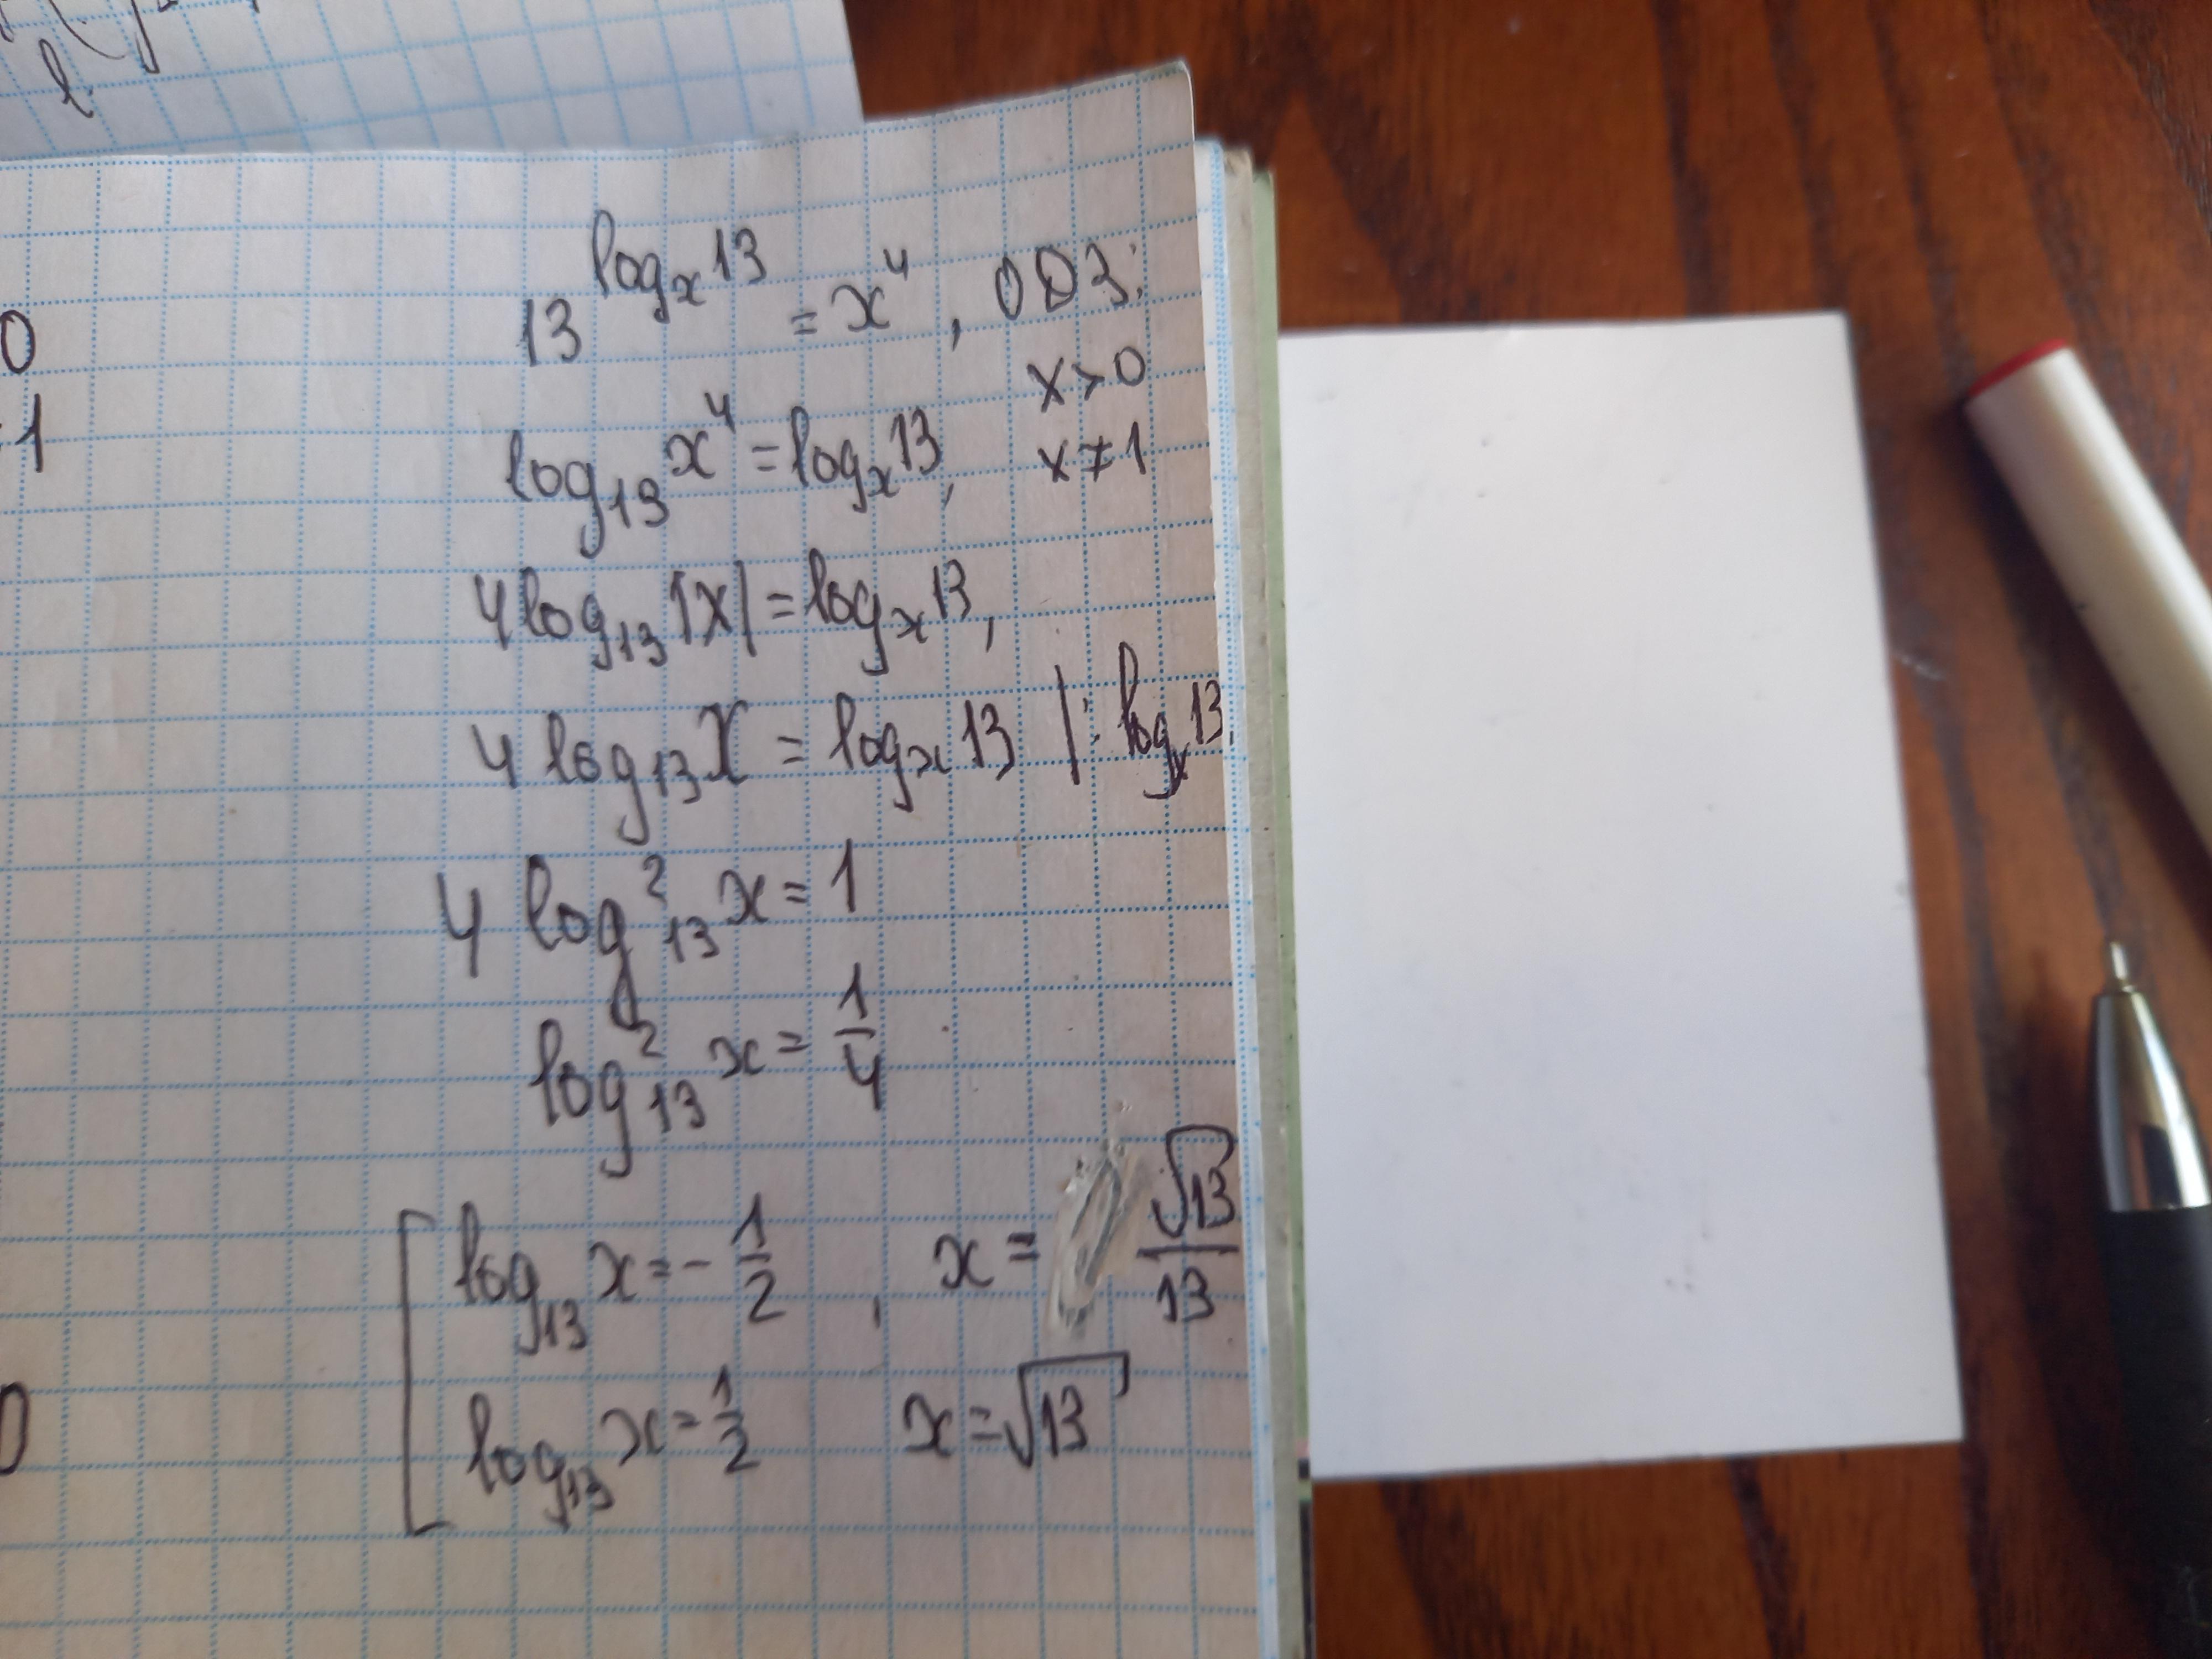 l
0
1
13^{log_x 13} = x^4, ОДЗ:
x>0
log_{13} x^4 = log_x 13,
x≠1
4 log_{13} |x| = log_x 13,
4 log_{13} x = log_x 13 |: log_x 13
4 log^2_{13} x = 1
log^2_{13} x = \frac{1}{4}
log_{13} x = -\frac{1}{2}, x = \frac{\sqrt{13}}{13}
log_{13} x = \frac{1}{2} x = \sqrt{13}